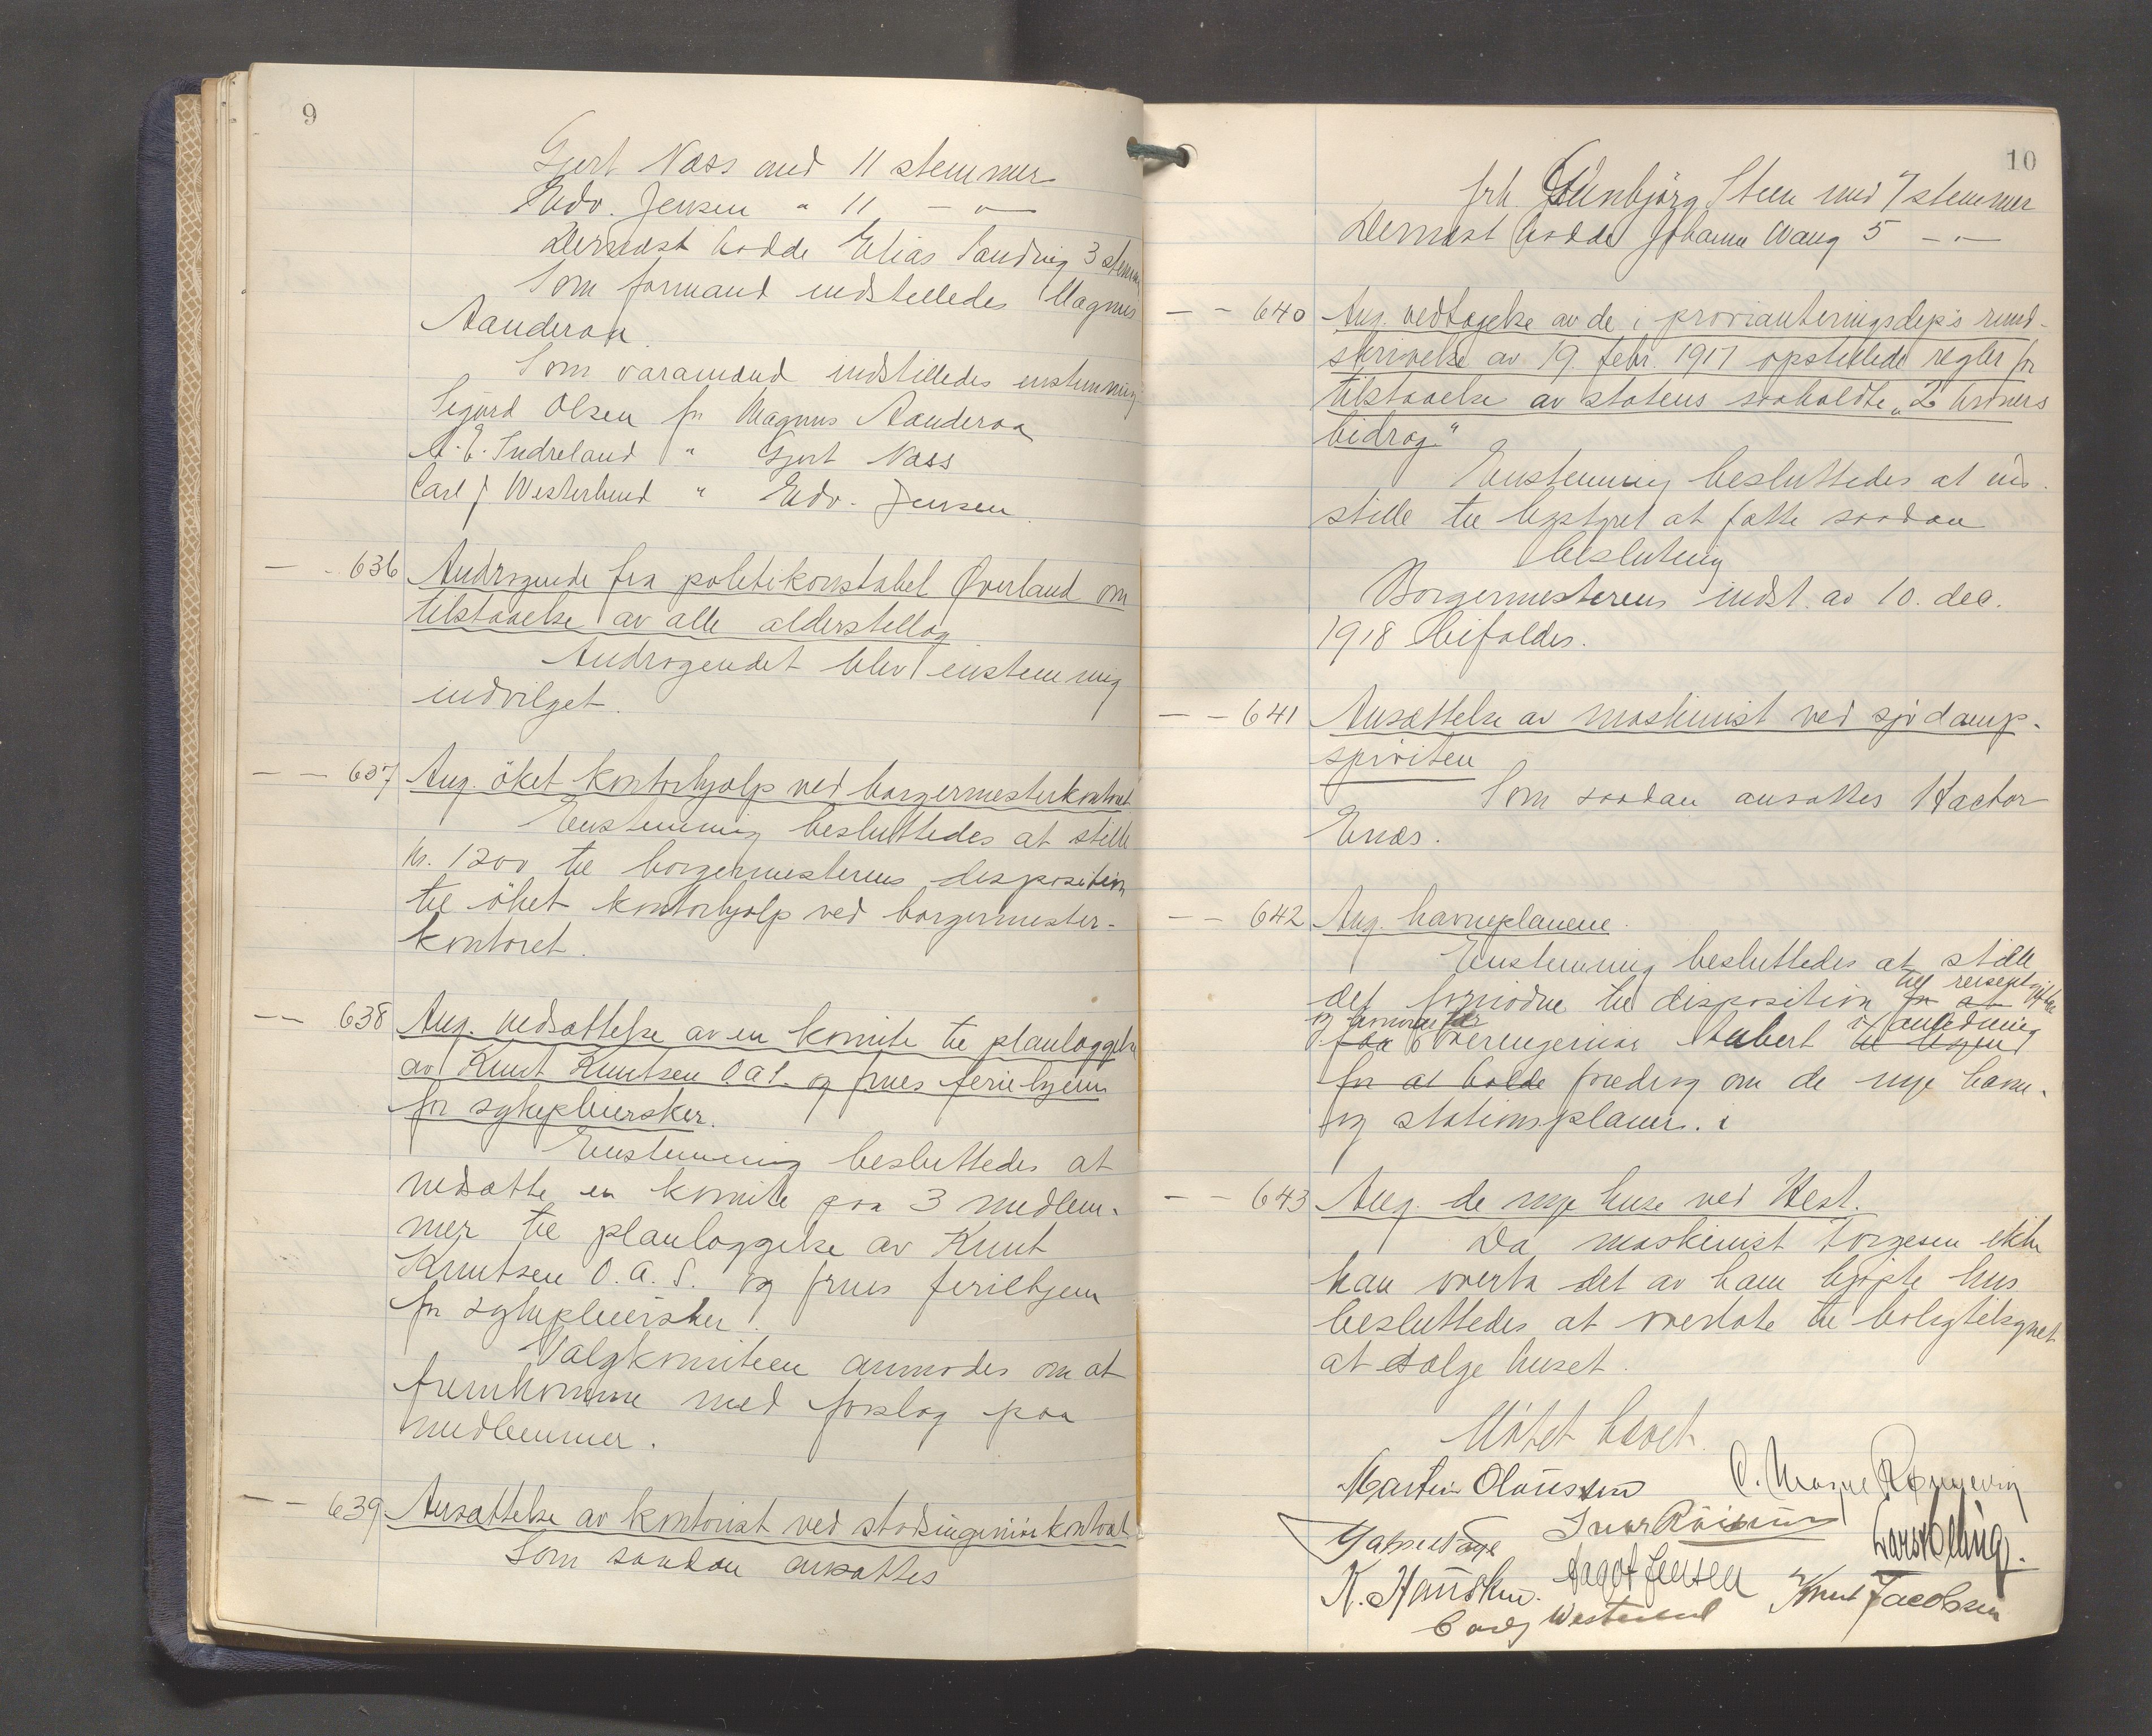 9
Gjert Næss med 11 stemmer
Edv. Jensen " 11 — " —
Dernæst hadde Elias Sandvig 3 stem
Som formand indstilledes Magnus
Aanderaa.
Som varamænd indstilledes enstemmig
Sigurd Olsen for Magnus Aanderaa
A. E. Indreland " Gjert Næss
Carl J Westerlund " Edv. Jensen.
— - 636 Andragende fra politikonstabel Øverland om
tilstaaelse av alle alderstillæg
Andragendet blev enstemmig
indvilget.
— — 637 Ang. öket kontorhjælp ved borgermesterkontoret
Enstemmig besluttedes at stille
kr. 1200 til borgermesterens disposition
til öket kontorhjælp ved borgermester-
kontoret.
— — 638 Ang. nedsættelse av en komite til planlæggelse
av Knut Knutsen O.A.S. og frues feriehjem
for sykepleiersker.
Enstemmig besluttedes at
nedsætte en komite paa 3 medlem-
mer til planlæggelse av Knut
Knutsen O.A.S. og frues feriehjem
for sykepleiersker.
Valgkomiteen anmodes om at
fremkomme med forslag paa
medlemmer.
— — 639 Ansættelse av kontorist ved stadsingeniørkontoret
Som saadan ansattes
10
frk. Steen med 7 stemmer
Dernæst hadde Johanne Waug 5 — " —
— — 640 Ang. vedtagelse av de i provianteringsdep's rund-
skrivelse av 19. febr. 1917 opstillede regler for
tilstaaelse av statens saakaldte „2 kroners
bidrag"
Enstemmig besluttedes at ind-
stille til bystyret at fatte saadan
beslutning
Borgermesterens indst. av 10. dec.
1918 bifaldes.
— — 641 Ansættelse av maskinist ved sjødamp-
spröiten
Som saadan ansattes Hactor
Enæs.
— — 642 Ang. havneplanene.
Enstemmig besluttedes at stille
det fornödne til disposition for at til reiseutgifter
og honorar for
faa overingeniör Aubert til byen i anledning
for at holde foredrag om de nye havne-
og stationsplaner.
— — 643 Ang. de nye huse ved Hest.
Da maskinist Torgesen ikke
kan overta det av ham kjøpte hus
besluttedes at overlate til boligtilsynet
at sælge huset.
Mötet hævet.
Martin Olaussen
K. Hausken. Aagot Jensen Knut Jacobsen
Carl J Westerlund